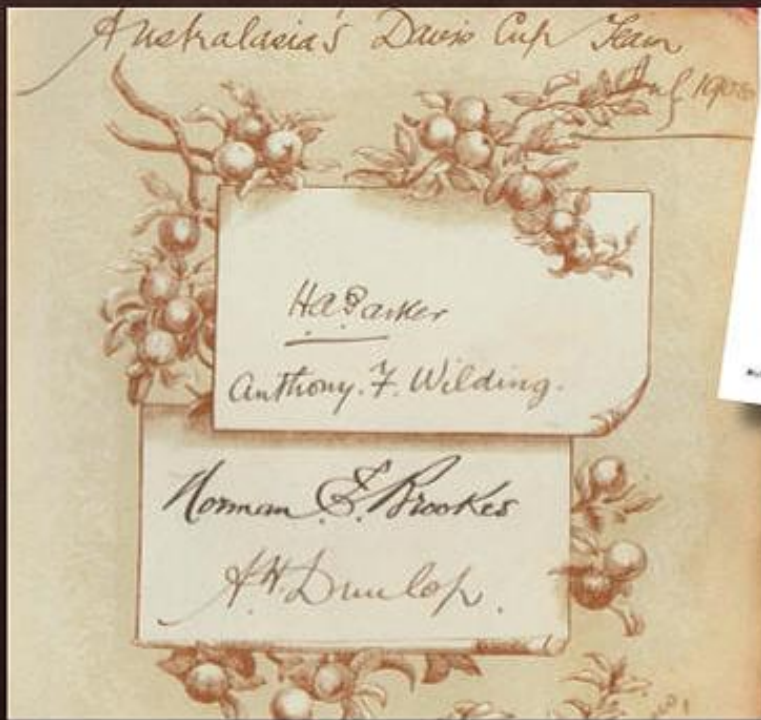 Australasia's Davis Cup Team
H A Parker
Anthony. F. Wilding.
Norman E. Brookes
A. H. Dunlop.